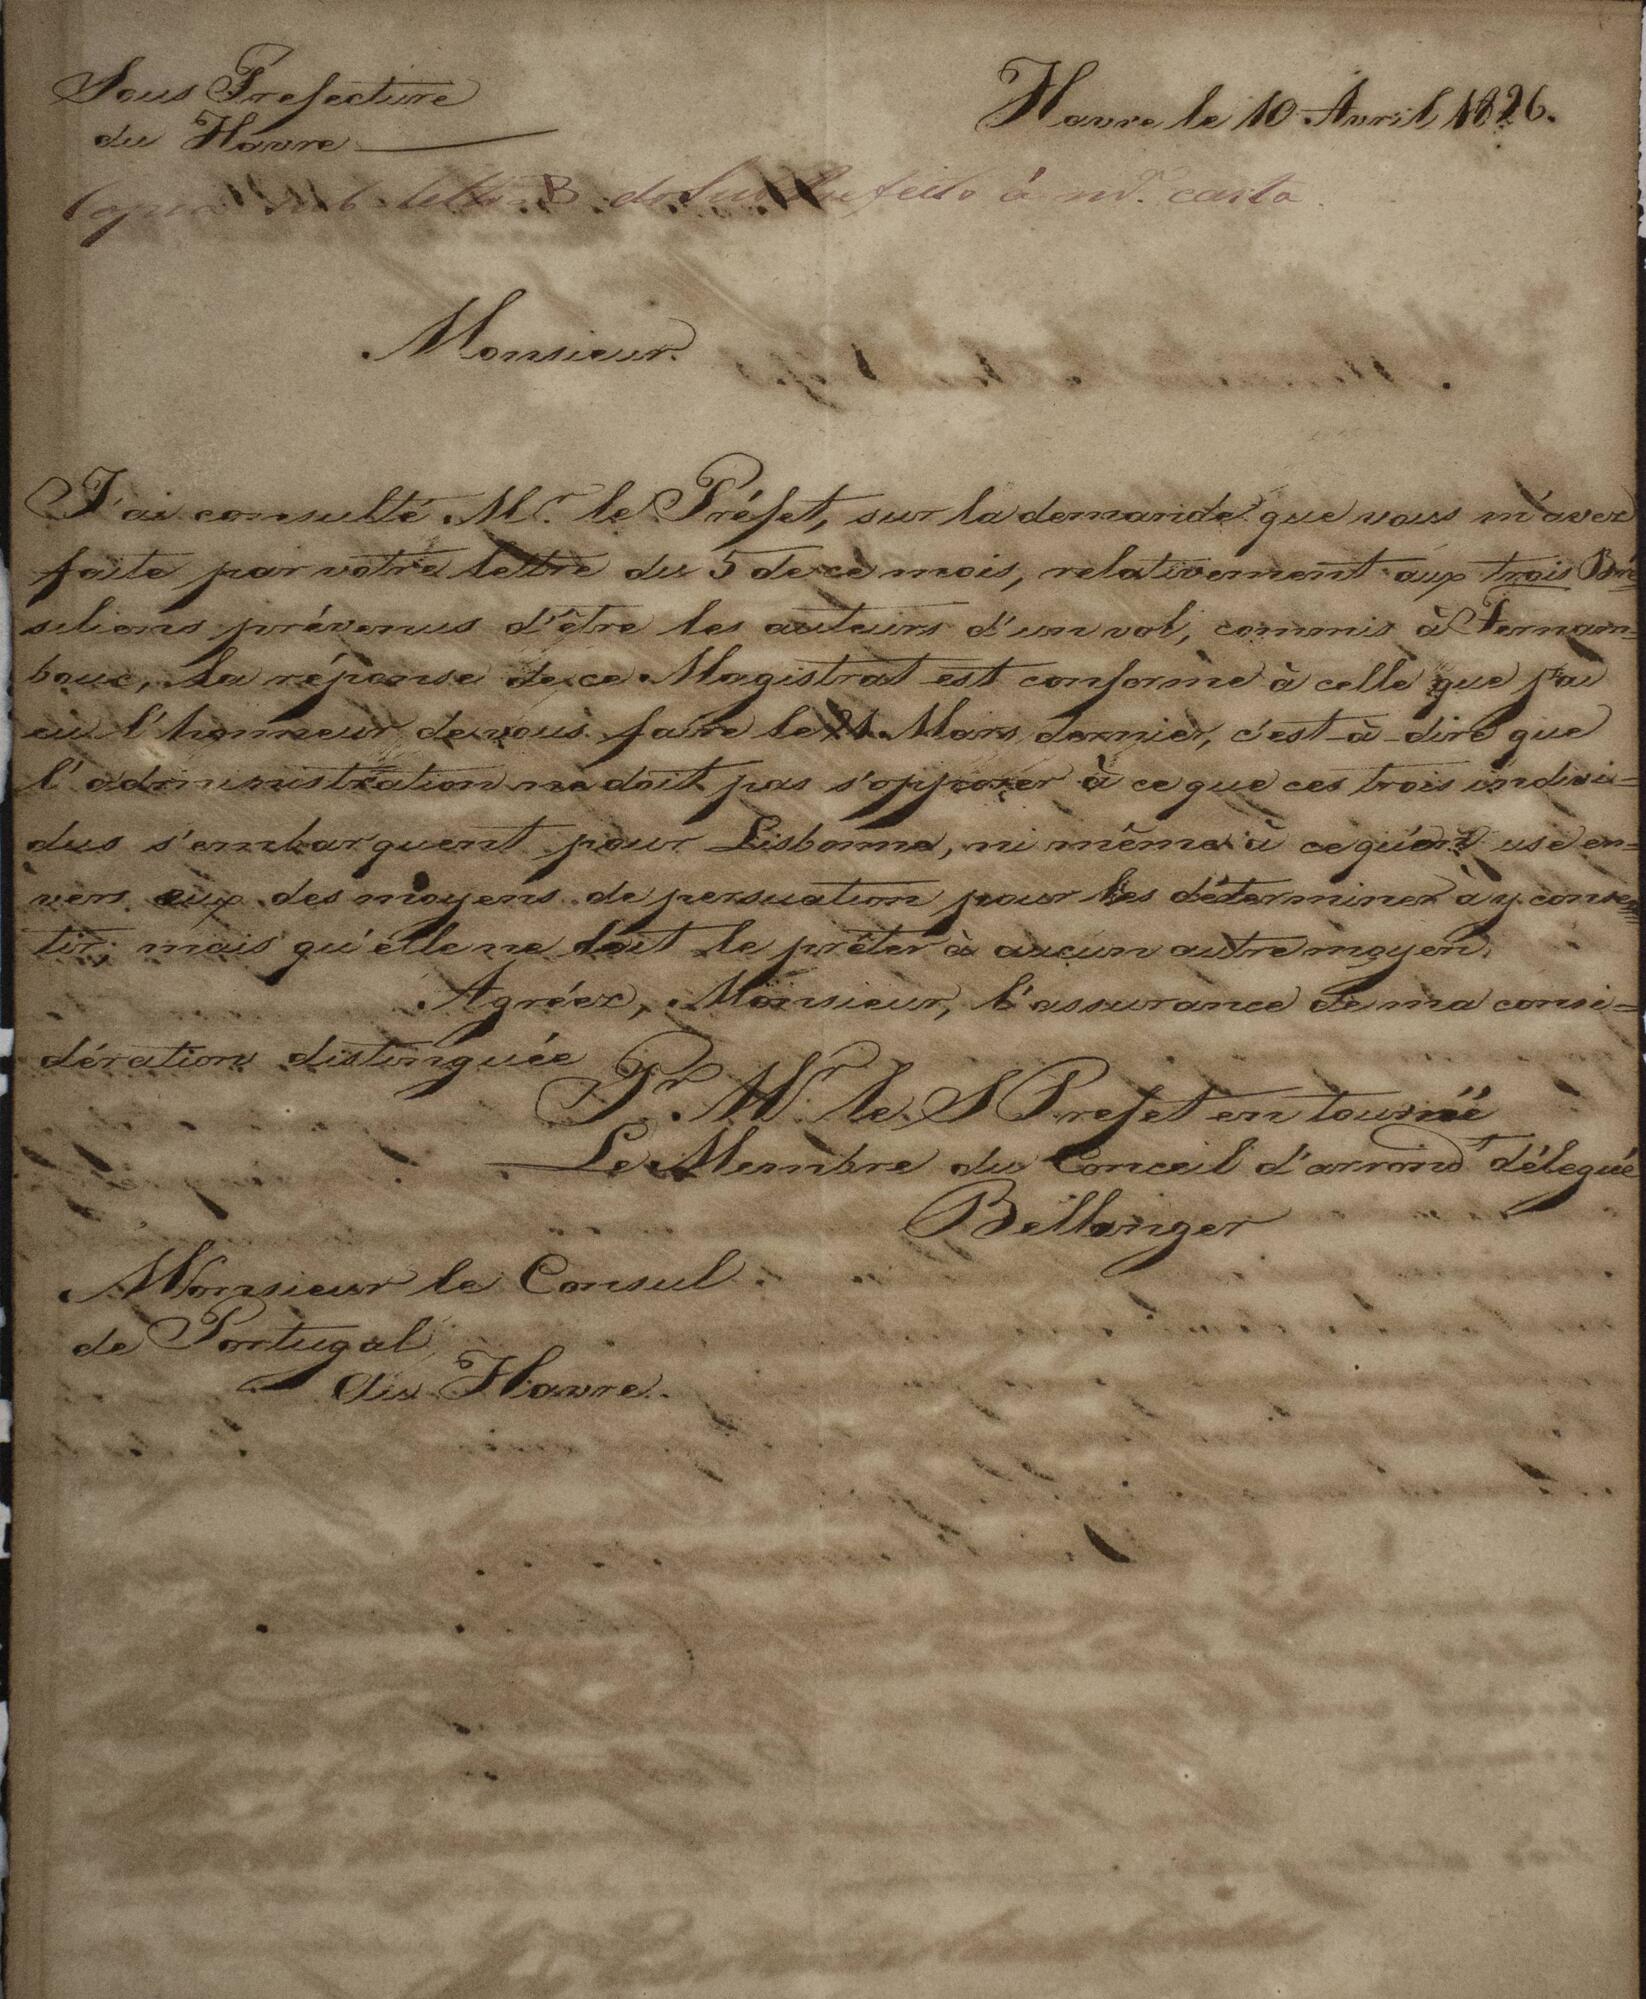 Sous Prefecture
du Havre
Havre le 10 Avril 1826.
letra B do Subprefeito á m.ª carta.
Monsieur.
J'ai consulté Mr. le Préfet, sur la demande que vous m'avez
faite par votre lettre du 5 de ce mois, relativement aux trois Bré=
siliens prévenus d'être les auteurs d'un vol, commis à Fernam=
bouc, la réponse de ce Magistrat est conforme à celle que j'ai
eu l'honneur de vous faire le 21 Mars dernier, c'est-à-dire que
l'administration ne doit pas s'opposer à ce que ces trois indivi=
dus s'embarquent pour Lisbonne, ni même à ce qu'on use en=
vers eux des moyens de persuation pour les déterminer à y consen=
tir; mais qu'elle ne doit se prêter à aucun autre moyen.
Agréez, Monsieur, l'assurance de ma consi=
dération distinguée
Pr. Mr. le S Prefet en tournée
Le Membre du Conceil d'arrondt. délegué
Bellanger
Monsieur le Consul
de Portugal
au Havre.